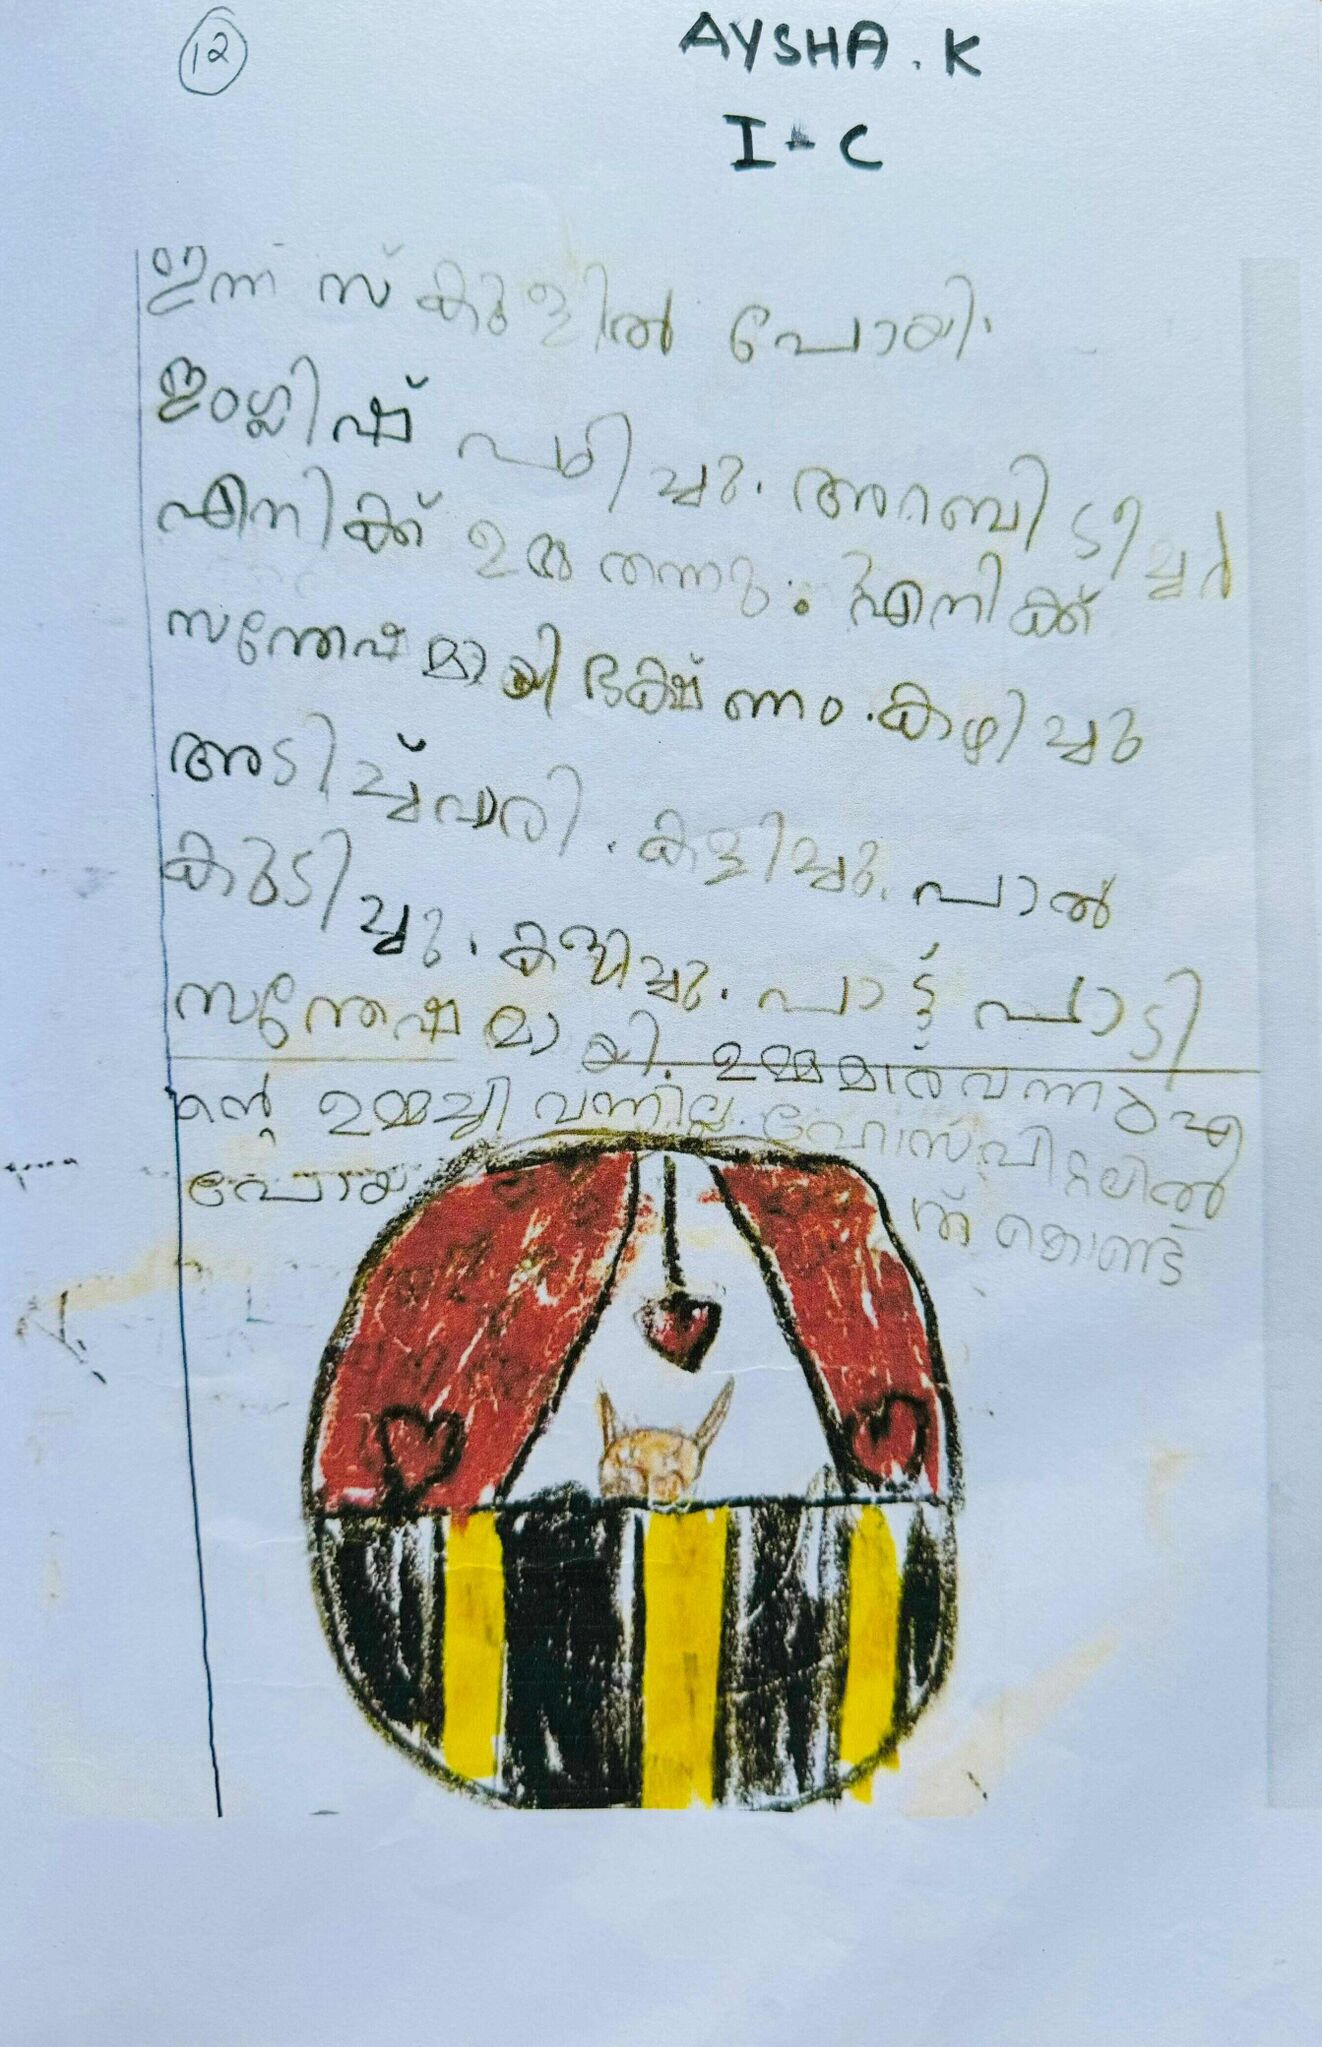 12
AYSHA. K
I - C
ഇന്ന് സ്കുളിൽ പോയി.
ഇംഗ്ലീഷ് പഠിച്ചു. അറബി ടീച്ചർ
എനിക്ക് ഉമ്മ തന്നു. എനിക്ക്
സന്തോഷമായി ഭക്ഷ്ണം. കഴിച്ചു
അടിച്ച്വാരി. കളിച്ചു. പാൽ
കുടിച്ചു. കളിച്ചു. പാട്ട് പാടി
സന്തോഷമായി. ഉമ്മമാർ വന്നു എ
ന്റെ ഉമ്മച്ചി വന്നില്ല. ഹോസ്പിറ്റലിൽ
പോയ
ത് കൊണ്ട്